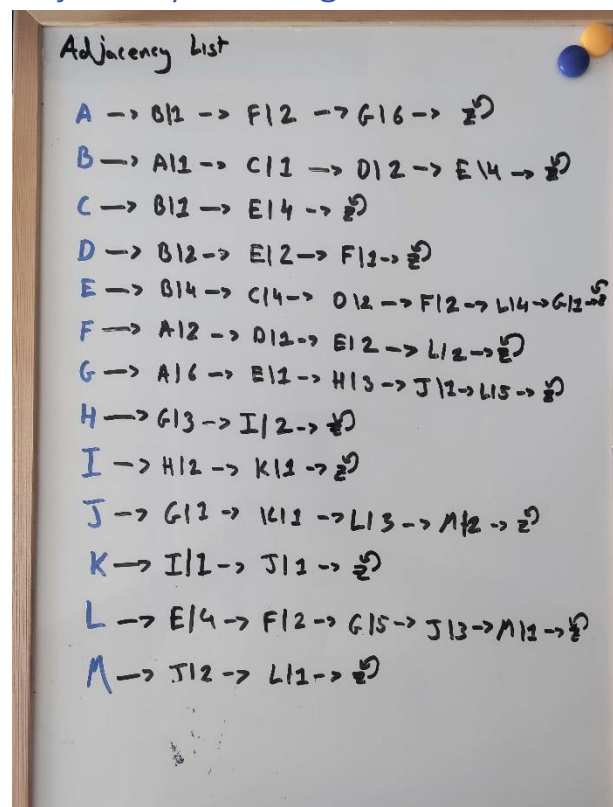 Adjacency List
A -> B|1 -> F|2 -> G|6 -> z
B -> A|1 -> C|1 -> D|2 -> E|4 -> z
C -> B|1 -> E|4 -> z
D -> B|2 -> E|2 -> F|1 -> z
E -> B|4 -> C|4 -> D|2 -> F|2 -> L|4 -> G|1 -> z
F -> A|2 -> D|1 -> E|2 -> L|2 -> z
G -> A|6 -> E|1 -> H|3 -> J|1 -> L|5 -> z
H -> G|3 -> I|2 -> z
I -> H|2 -> K|1 -> z
J -> G|1 -> K|1 -> L|3 -> M|2 -> z
K -> I|1 -> J|1 -> z
L -> E|4 -> F|2 -> G|5 -> J|3 -> M|1 -> z
M -> J|2 -> L|1 -> z